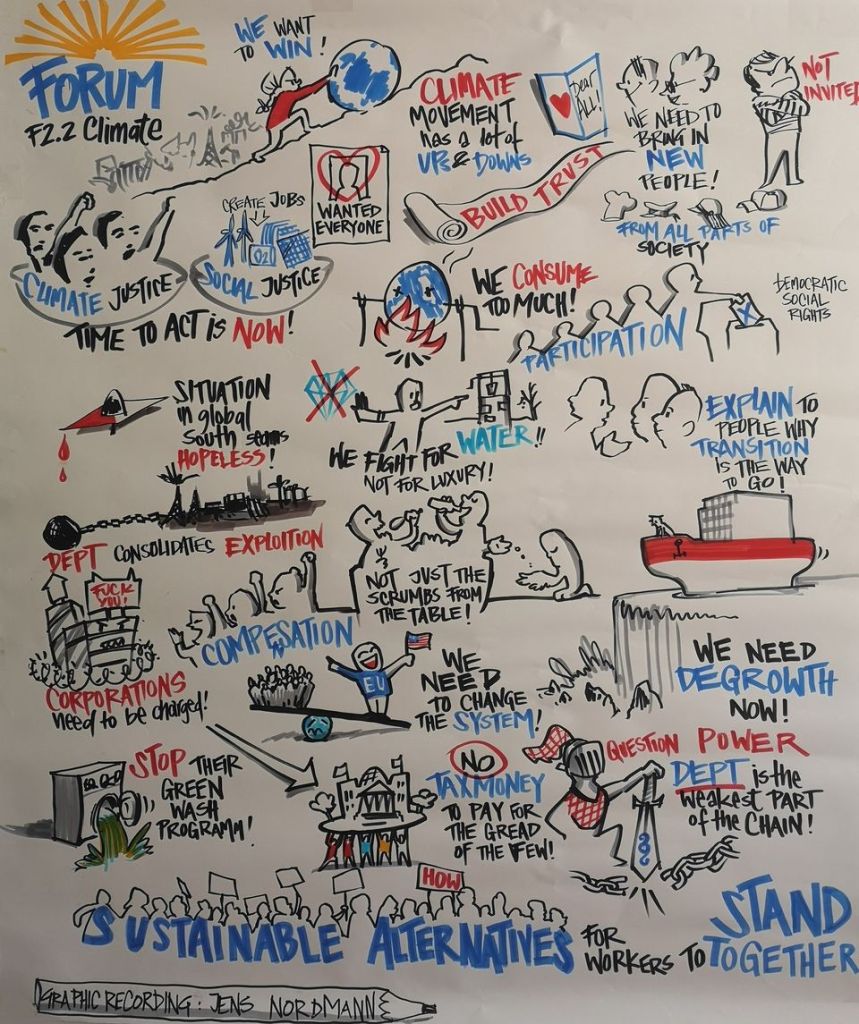 WE WANT
TO WIN!
FORUM
F2.2 Climate
CLIMATE
MOVEMENT
has a lot of
UPS & DOWNS
Dear
ALL!
WE NEED TO
BRING IN
NEW
PEOPLE!
NOT
INVITED
FROM ALL PARTS OF
SOCIETY
BUILD TRUST
WANTED
EVERYONE
CREATE JOBS
O2
CLIMATE JUSTICE
SOCIAL JUSTICE
TIME TO ACT IS NOW!
WE CONSUME
TOO MUCH!
PARTICIPATION
DEMOCRATIC
SOCIAL
RIGHTS
SITUATION
in global
South seems
HOPELESS!
WE FIGHT FOR
WATER!!
NOT FOR LUXURY!
EXPLAIN TO
PEOPLE WHY
TRANSITION
IS THE WAY
TO GO!
DEPT CONSOLIDATES EXPLOITION
NOT JUST THE
SCRUMBS FROM
THE TABLE!
FUCK
YOU!
COMPESATION
CORPORATIONS
need to be charged!
EU
WE
NEED
TO CHANGE
THE SYSTEM!
WE NEED
DEGROWTH
NOW!
STOP THEIR
GREEN
WASH
PROGRAMM!
NO
TAXMONEY
TO PAY FOR
THE GREAD
OF THE FEW!
QUESTION POWER
DEPT is the
weakest PART
of the CHAIN!
HOW
SUSTAINABLE ALTERNATIVES FOR
WORKERS TO
STAND
TOGETHER
GRAPHIC RECORDING: JENS NORDMANN